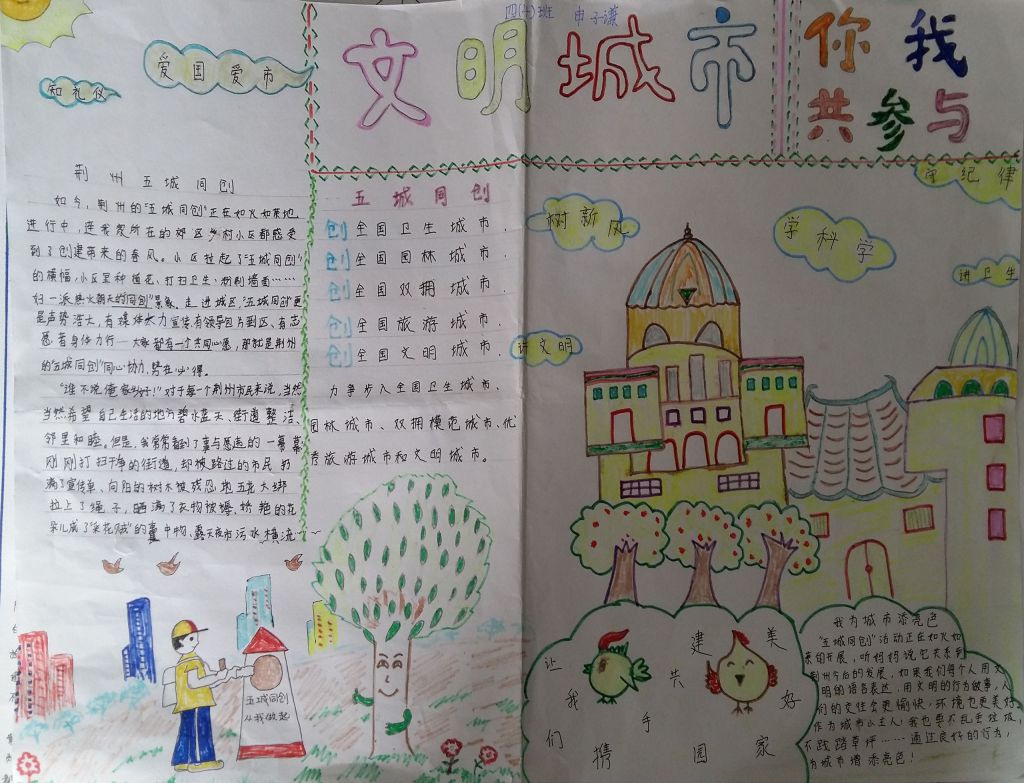 四(十)班 申子潇
文明城市
你我
共参与
爱国爱市
知礼仪
荆州五城同创
如今,荆州的"五城同创"正在如火如荼地
进行中,连我家所在的郊区乡村小区都感受
到了创建带来的春风。小区挂起了"五城同创"
的横幅,小区里种植花、打扫卫生、粉刷墙面……
好一派热火朝天的同创"景象。走进城区,"五城同创"更
是声势浩大,有媒体大力宣传,有领导包片到区、有志
愿者身体力行—大家都有一个共同心愿,那就是荆州
的"五城同创"同心协力,势在必得。
"谁不说俺家乡好!"对于每个荆州市民来说,当然
当然希望自己生活的地方碧水蓝天、街道整洁、
邻里和睦。但是,我常常看到了事与愿违的一幕幕
刚刚打扫干净的街道,却被路过的市民扔
满了宣传单、向阳的树木被残忍地五花大绑
拉上了绳子,晒满了衣物被褥、娇艳的花
朵儿成了"采花贼"的囊中物、露天夜市污水横流……
五城同创
创全国卫生城市.
创全国园林城市.
创全国双拥城市.
创全国旅游城市.
创全国文明城市.
力争步入全国卫生城市、
园林城市、双拥模范城市、优
秀旅游城市和文明城市。
守纪律
树新风
学科学
讲卫生
讲文明
五城同创
从我做起
让我们携手共建美好国家
我为城市添亮色
"五城同创"活动正在如火如
荼的开展,听妈妈说它关系到
荆州今后的发展,如果我们每个人用文
明的语言表达,用文明的行为做事,人
们的交往会更愉快,环境也更美好
作为城市小主人!我也要不乱丢垃圾,
不践踏草坪……通过良好的行为,
为城市增添亮色!